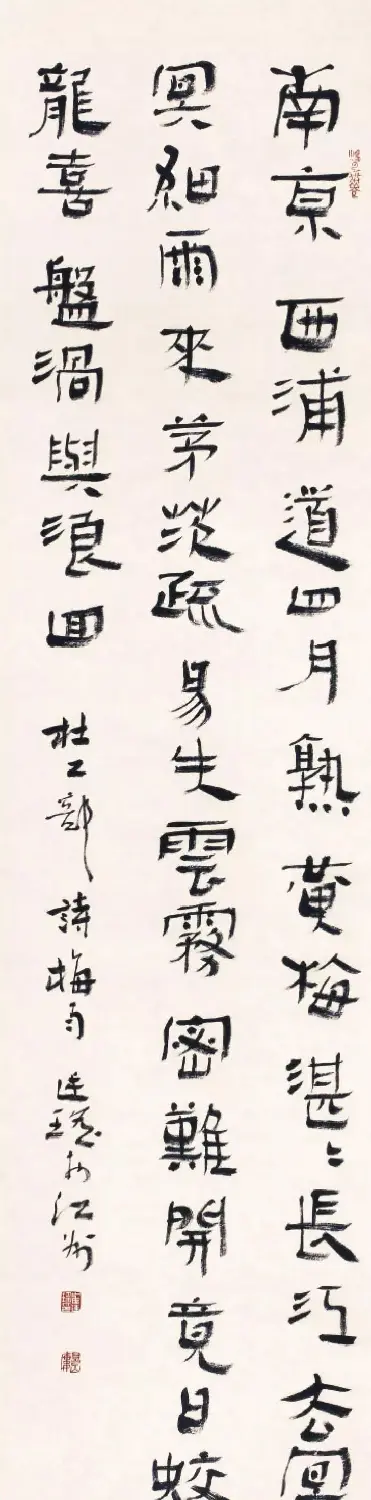 南京西浦道四月熟黄梅湛〻長江去冥
冥細雨來茅茨疏易失雲霧密難開竟日蛟
龍喜盤渦與浪回
杜工部詩梅雨 於江州